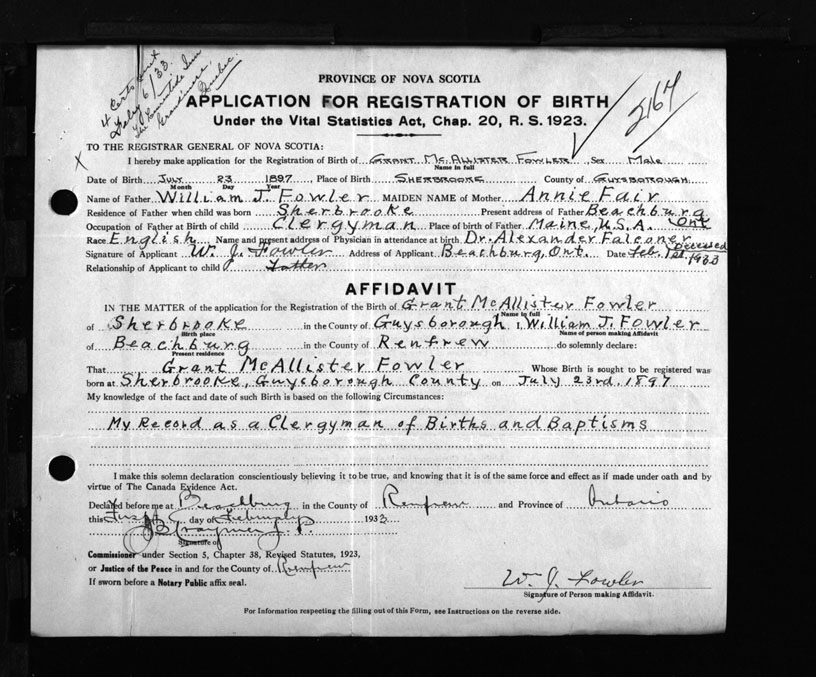 4 Certs sent
Feby 6/33
Quebec.
2167
PROVINCE OF NOVA SCOTIA
APPLICATION FOR REGISTRATION OF BIRTH
Under the Vital Statistics Act, Chap. 20, R. S. 1923.
TO THE REGISTRAR GENERAL OF NOVA SCOTIA:
X
I hereby make application for the Registration of Birth of GRANT MCALLISTER FOWLER Sex Male
Name in full
Date of Birth JULY 23 1897 Place of Birth SHERBROOKE County of GUYSBOROUGH
Month Day Year
Name of Father William J. Fowler MAIDEN NAME of Mother Annie Fair
Residence of Father when child was born Sherbrooke Present address of Father Beachburg Ont
Occupation of Father at Birth of child Clergyman Place of birth of Father Maine, U.S.A.
Race English Name and present address of Physician in attendance at birth Dr. Alexander Falconer Deceased
Signature of Applicant W. J. Fowler Address of Applicant Beachburg, Ont. Date Feb. 1st. 1933
Relationship of Applicant to child Father
AFFIDAVIT
IN THE MATTER of the application for the Registration of the Birth of Grant McAllister Fowler
Name in full
of Sherbrooke in the County of Guysborough I, William J. Fowler
Birth place Name of person making Affidavit
of Beachburg in the County of Renfrew do solemnly declare:
Present residence
That Grant McAllister Fowler Whose Birth is sought to be registered was
born at Sherbrooke, Guysborough County on July 23rd, 1897
My knowledge of the fact and date of such Birth is based on the following Circumstances:
My Record as a Clergyman of Births and Baptisms
I make this solemn declaration conscientiously believing it to be true, and knowing that it is of the same force and effect as if made under oath and by
virtue of The Canada Evidence Act.
Declared before me at Beachburg in the County of Renfrew and Province of Ontario
this First day of February 1933
J. P.
Signature of
Commissioner under Section 5, Chapter 38, Revised Statutes, 1923,
or Justice of the Peace in and for the County of Renfrew
If sworn before a Notary Public affix seal.
W. J. Fowler
Signature of Person making Affidavit.
For Information respecting the filling out of this Form, see Instructions on the reverse side.